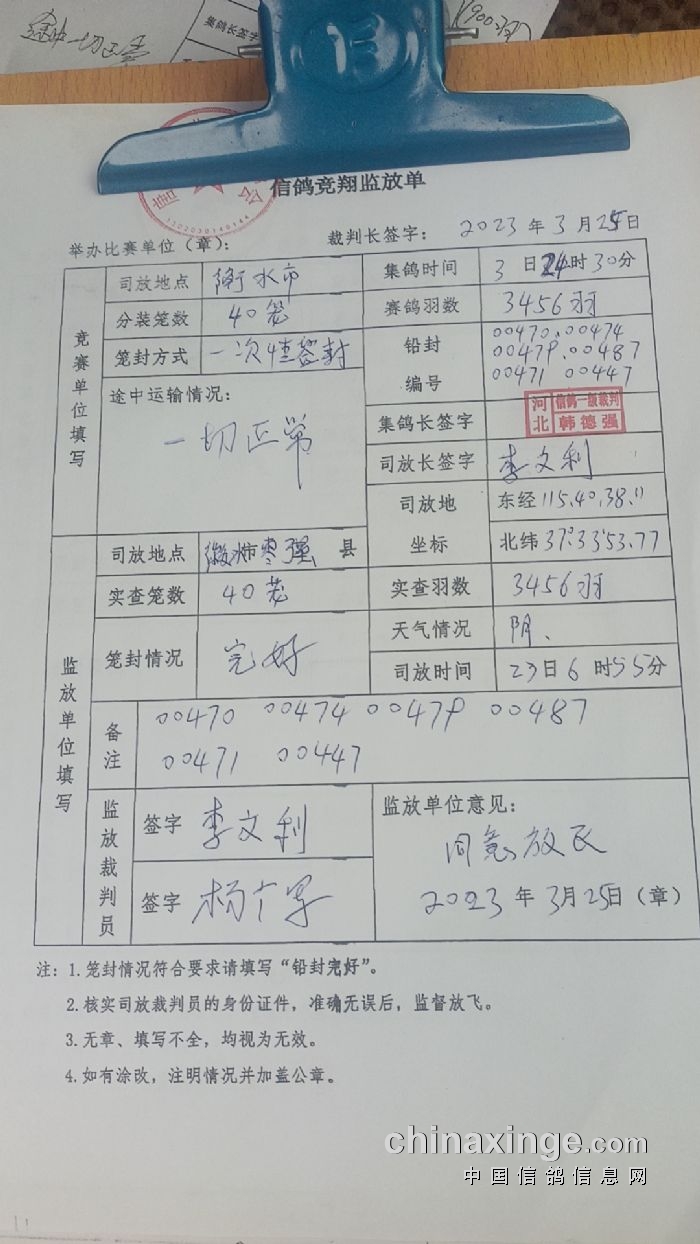 途中一切正常
集鸽长签字
信鸽竞翔监放单
举办比赛单位（章）：
裁判长签字：
2023年3月25日
竞赛单位填写
司放地点 衡水市
集鸽时间 3日24时30分
分装笼数 40笼
赛鸽羽数 3456羽
笼封方式
铅封编号
00470.00474
00479.00487
00471 00447
途中运输情况：
一切正常
集鸽长签字
河北 信鸽一级裁判 韩德强
司放长签字 李文利
司放地坐标
东经115.40.38.11
北纬37.33'53.77
监放单位填写
司放地点 枣强县
实查笼数 40笼
实查羽数 3456羽
笼封情况 完好
天气情况 阴、
司放时间 23日6时55分
备注
00470 00474 00479 00487
00471 00447
监放裁判员
签字 李文利
签字
监放单位意见：
同意放飞
2023年3月25日（章）
注：1.笼封情况符合要求请填写“铅封完好”。
2.核实司放裁判员的身份证件，准确无误后，监督放飞。
3.无章、填写不全，均视为无效。
4.如有涂改，注明情况并加盖公章。
chinaxinge.com
中国信鸽信息网